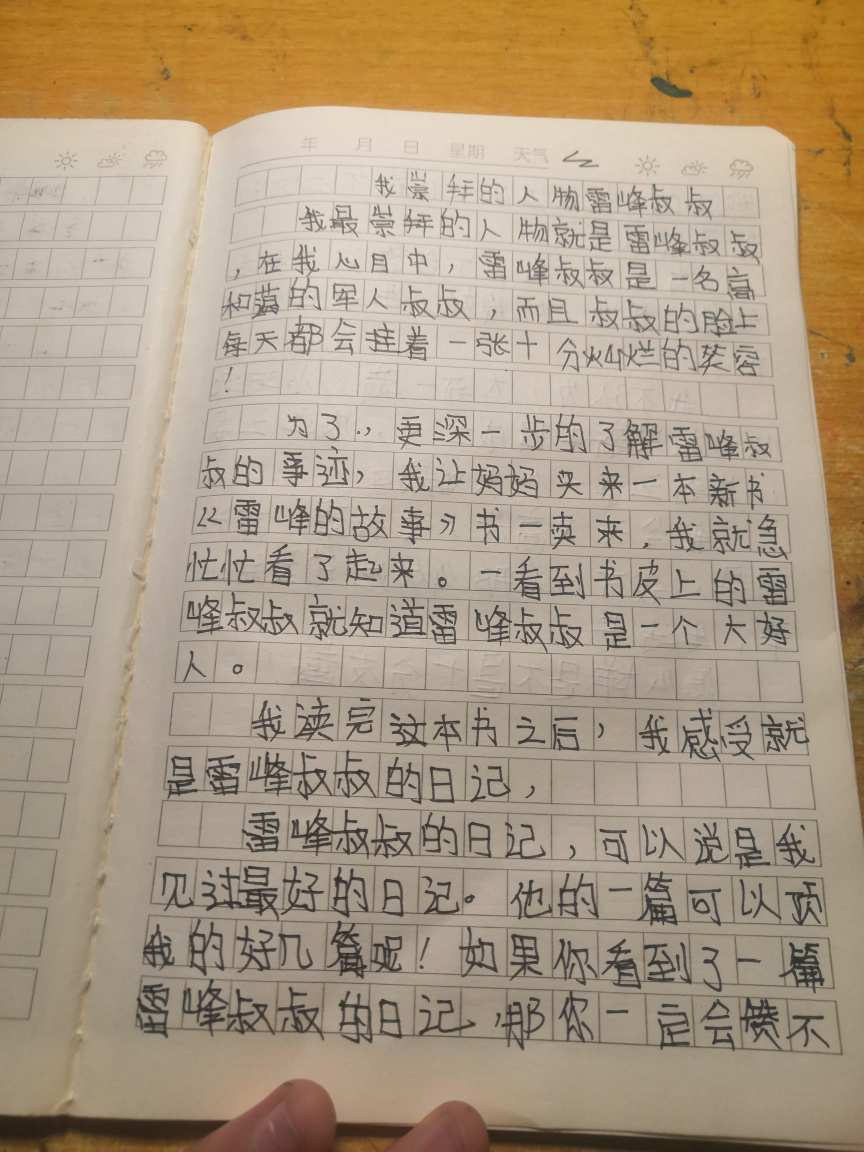 年 月 日 星期 天气
我崇拜的人物雷峰叔叔
我最崇拜的人物就是雷峰叔叔
，在我心目中，雷峰叔叔是一名高
和蔼的军人叔叔，而且叔叔的脸上
每天都会挂着一张十分灿烂的笑容
！
为了，更深一步的了解雷峰叔
叔的事迹，我让妈妈买来一本新书
《雷峰的故事》书一卖来，我就急
忙忙看了起来。一看到书皮上的雷
峰叔叔就知道雷峰叔叔是一个大好
人。
我读完这本书之后，我感受就
是雷峰叔叔的日记，
雷峰叔叔的日记，可以说是我
见过最好的日记。他的一篇可以顶
我的好几篇呢！如果你看到了一篇
雷峰叔叔的日记，那你一定会赞不